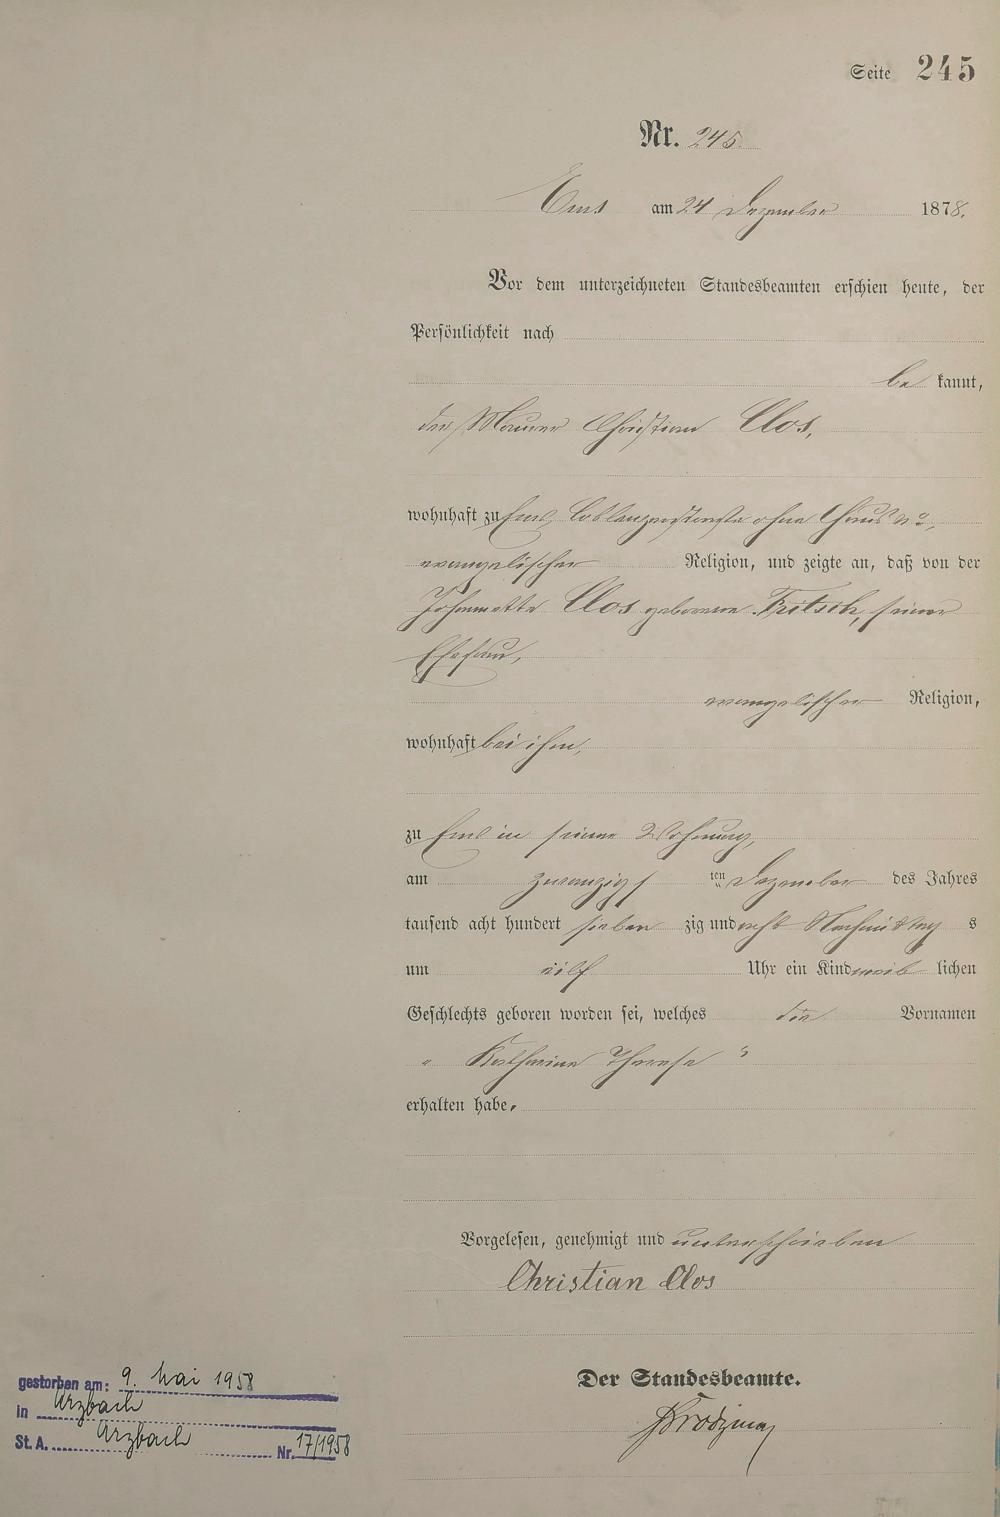 Seite 245
Nr. 245.
Ems am 24 Dezember 1878.
Vor dem unterzeichneten Standesbeamten erschien heute, der
Persönlichkeit nach
be kannt,
der Maurer Christian Clos,
wohnhaft zu Ems, Coblenzerstraße ohne Haus No,
evangelischer Religion, und zeigte an, daß von der
Johannette Clos geborene Fritsch, seiner
Ehefrau,
evangelischer Religion,
wohnhaft bei ihm,
zu Ems in seiner Wohnung,
am zwanzigs ten Dezember des Jahres
tausend acht hundert sieben zig und acht Nachmittag s
um elf Uhr ein Kind weib lichen
Geschlechts geboren worden sei, welches die Vornamen
„ Katharine Therese "
erhalten habe.
Vorgelesen, genehmigt und unterschrieben
Christian Clos
Der Standesbeamte.
gestorben am: 9. Mai 1958
in Arzbach
St. A. Arzbach Nr. 17/1958